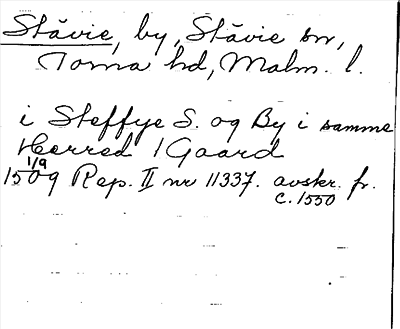 Stävie, by, Stävie sn,
Torna hd, Malm. l.
i Steffye S. og By i samme
Herred 1 Gaard
1/9
1509 Rep. II nr 11337. avskr. fr.
c. 1550